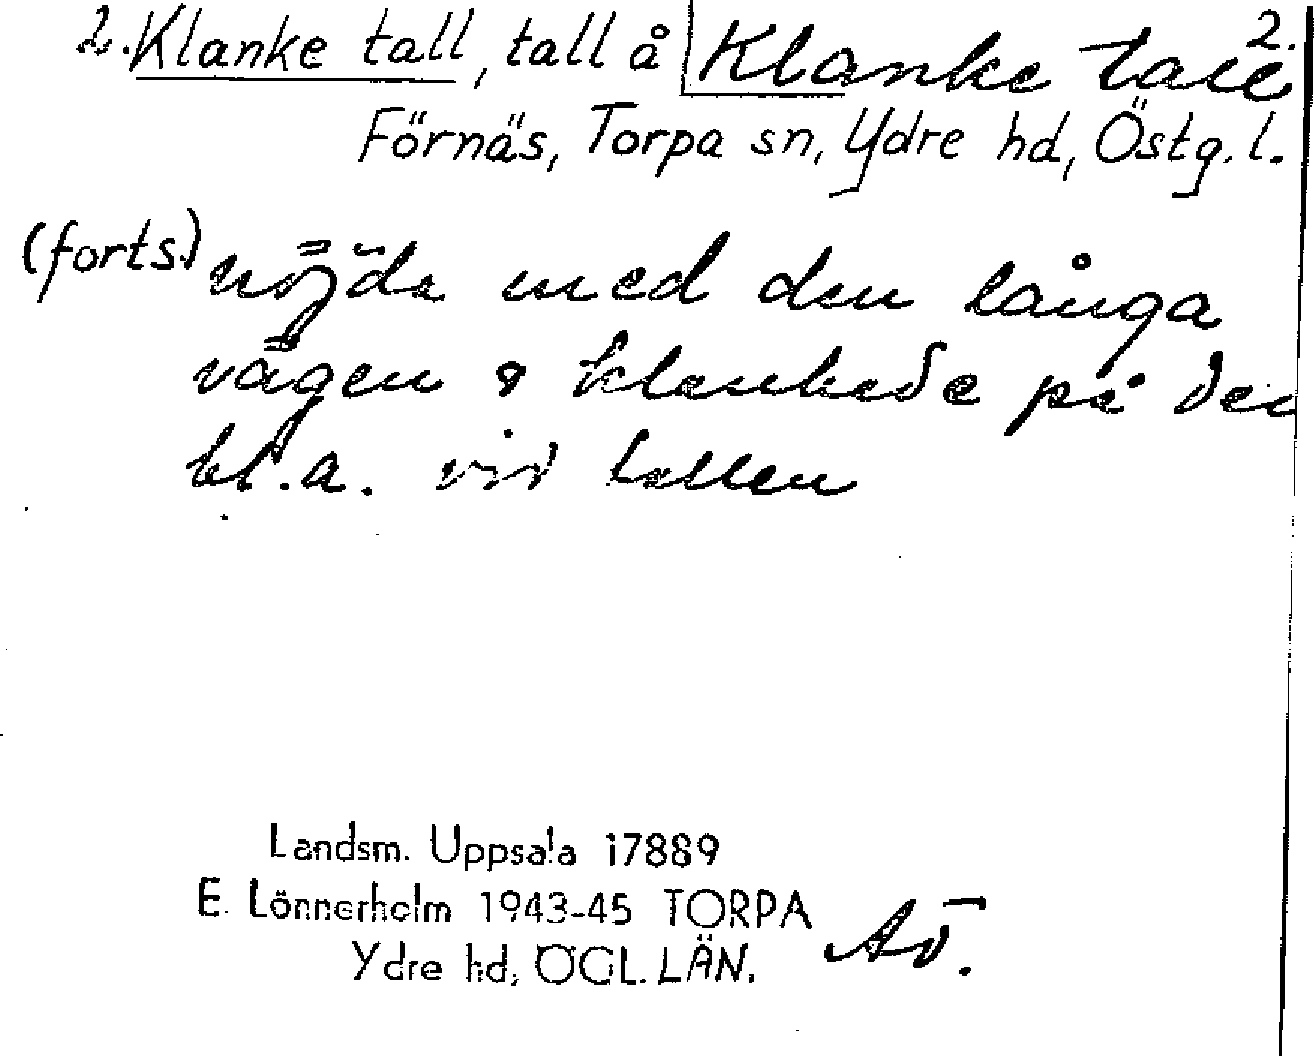 2. Klanke tall, tall å Klanke tall 2.
Förnäs, Torpa sn, Ydre hd, Östg. l.
(forts.) nöjda med den långa
vägen & klankade på den
bl.a. vid tallen
Landsm. Uppsala 17889
E. Lönnerholm 1943-45 TORPA
Ydre hd, ÖGL. LÄN.
Av.